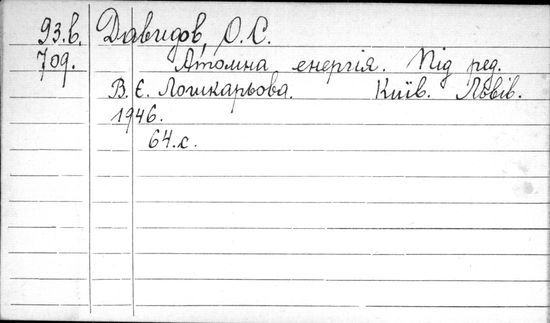 93.в. Давидов, О. С.
709. Атомна енергія. Під ред.
В. Є. Лошкарьова. Київ. Львів.
1946.
64.с.